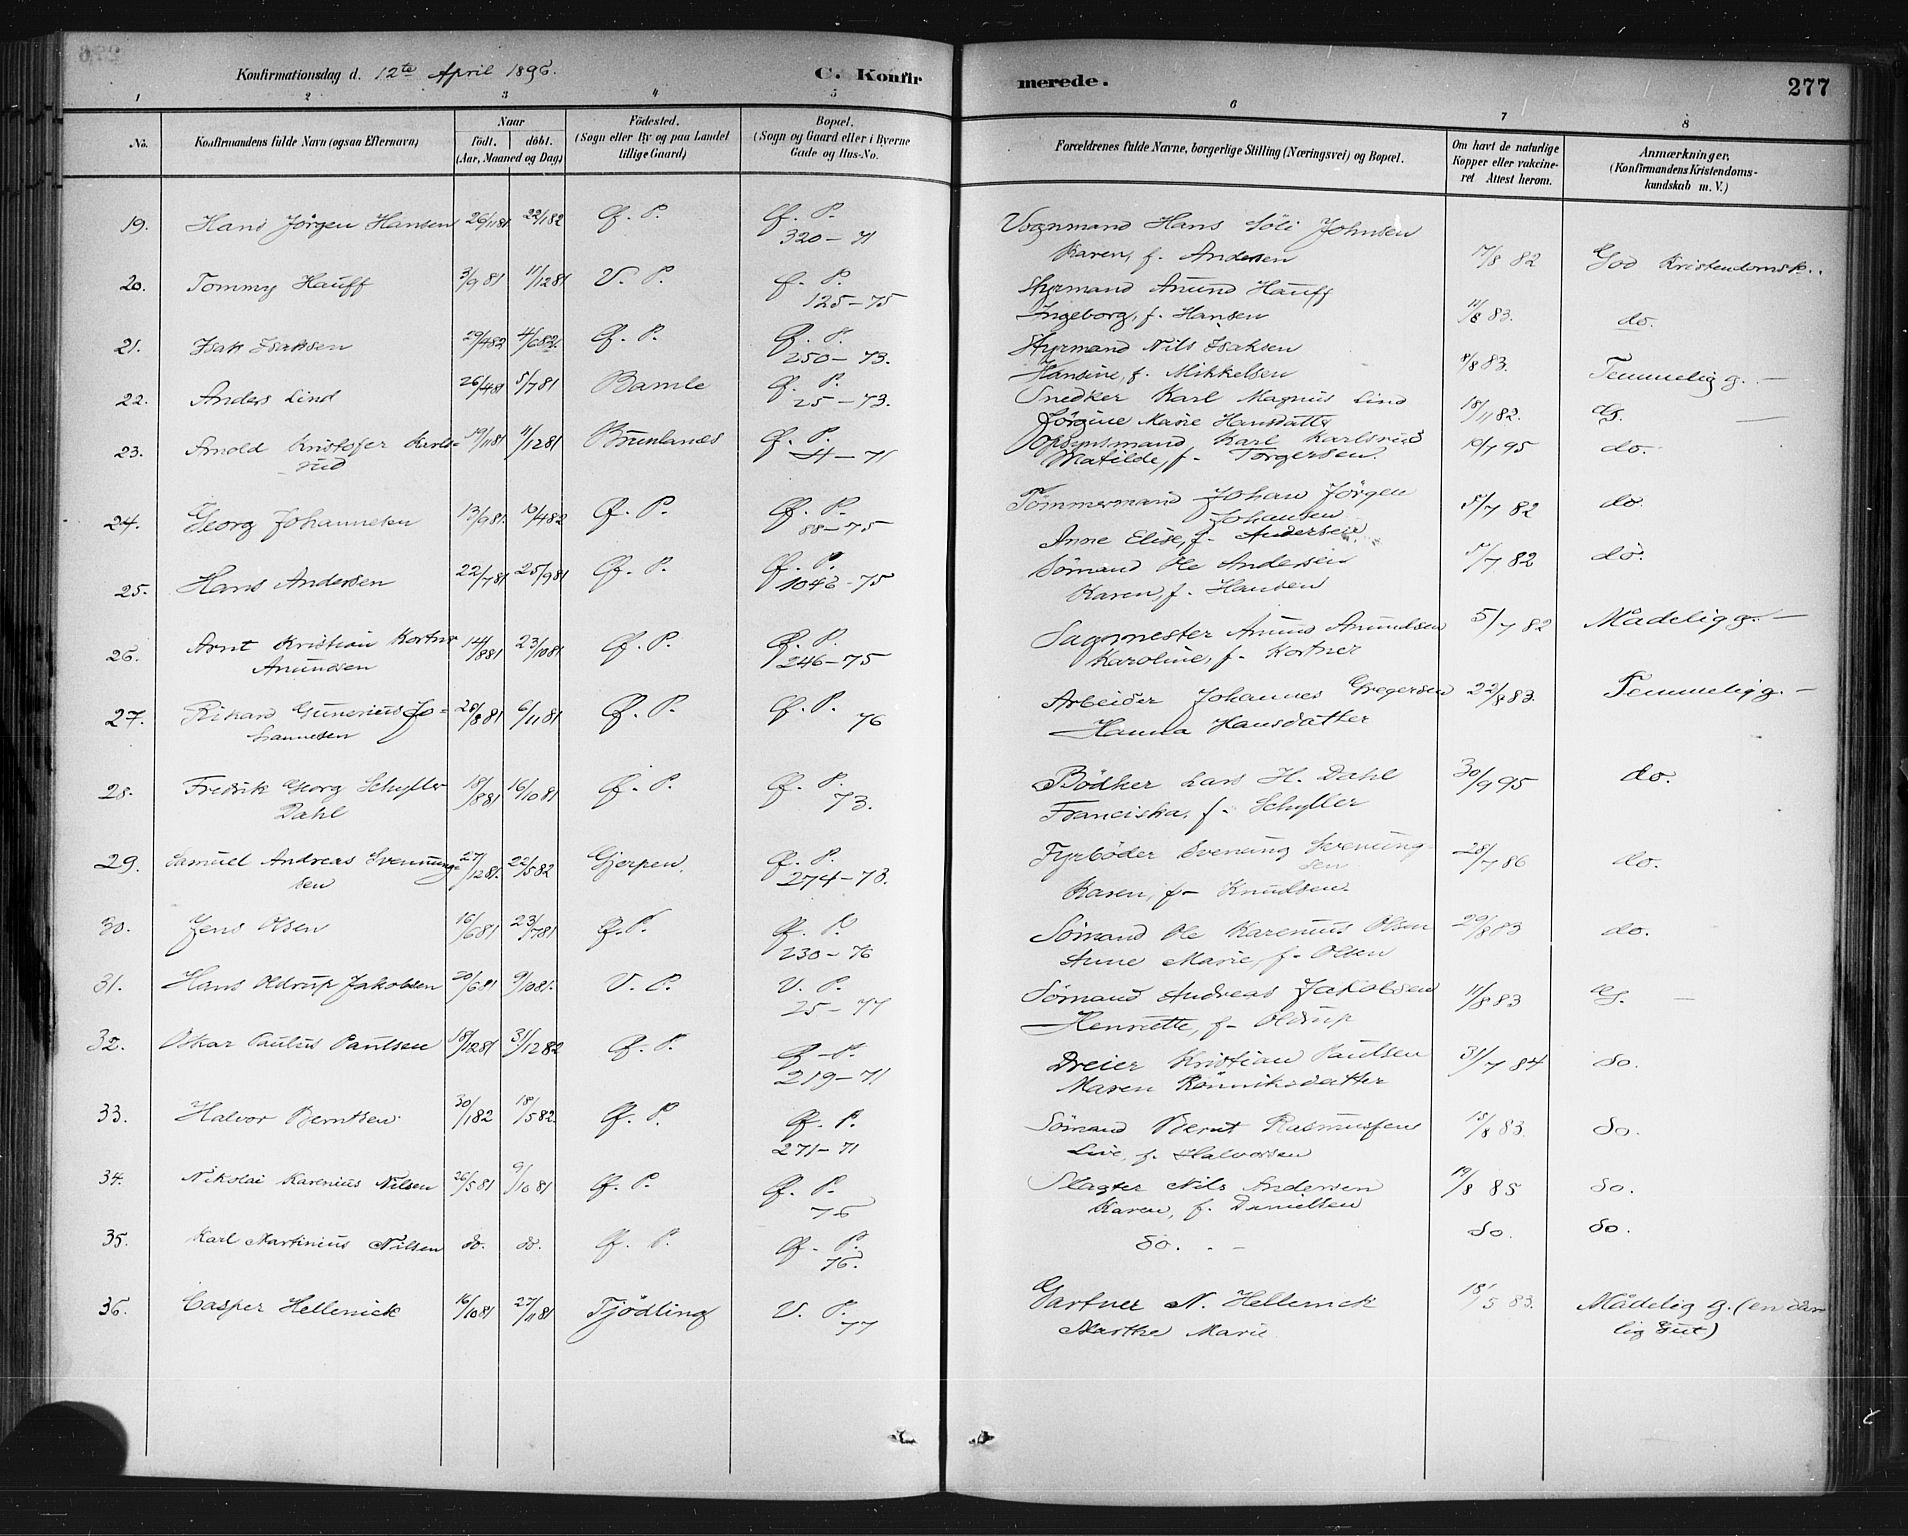 Konfirmationsdag d. 12te April 1896. C. Konfir merede. 277
1 2 3 4 5 6 7 8
No. Konfirmandens fulde Navn (ogsaa Efternavn) Naar födt. döbt. (Aar, Maaned og Dag) Födested. (Sogn eller By og paa Landet tillige Gaard) Bopæl. (Sogn og Gaard eller i Byerne Gade og Hus-No. Forældrenes fulde Navne, borgerlige Stilling (Næringsvei) og Bopæl. Om havt de naturlige Kopper eller vakcineret Attest herom. Anmærkninger. (Konfirmandens Kristendomskundskab m. V.)
19. Hans Jörgen Hansen 26/11 81 22/1 82 Ø. P. Ø. P. Vognmand Hans Söli Johnsen
320-71 Karen, f. Andersen 7/8 82 God Kristendomsk.
20. Tommy Hauff 3/9 81 11/12 81 V. P. Ø. P. Styrmand Anund Hauff
125-75 Ingeborg, f. Hansen 11/8 83. do.
21. Isak Isaksen 29/4 82 4/6 82. Ø. P. Ø. P. Styrmand Nils Isaksen
250-73. Hansine, f. Mikkelsen 8/8 83. Temmelig g. -
22. Anders Lind 26/4 81 5/7 81 Bamle Ø. P. Snedker Karl Magnus Lind
25-73. Jörgine Marie Hansdatter 18/11 82. G. -
23. Arnold Kristofer Karls- 19/11 81 11/12 81 Brunlanæs Ø. P. Opsynsmand Karl Karlsrud
rud 4-71 Matilde, f. Torgersen. 19/7 95 do.
24. Georg Johannesen 13/9 81. 16/4 82 Ø. P. Ø. P. Tömmermand Johan Jörgen 5/7 82 do.
88-75 Johansen
Anne Elise, f. Andersen
25. Hans Andersen 22/7 81 25/9 81 Ø. P. Ø. P. Sömand Ole Andersen 5/7 82 do.
1042-75 Karen, f. Hansen
26. Arnt Kristian Kortner 14/8 81 23/10 81 Ø. P. Ø. P. Sagmester Anund Anundsen 5/7 82 Mådelig g. -
Anundsen 246-75 Karoline, f. Kortner
27. Rikard Gunerius Jo- 28/8 81 6/11 81 Ø. P. Ø. P. 76 Arbeider Johannes Gregersen 22/8 83. Temmelig g. -
hannesen Hanna Hansdatter
28. Fredrik Georg Schyller 18/8 81 16/10 81 Ø. P. Ø. P. Bödker Lars H. Dahl 30/9 95 do.
Dahl 73. Franciska, f. Schyller
29. Samuel Andreas Svennung- 27/12 81. 22/5 82 Gjerpen. Ø. P. Fyrböder Svenung Svenung- 28/7 86 do.
sen 274-73. sen
Karen, f. Knudsen.
30. Jens Olsen 16/6 81 23/7 81 Ø. P. Ø. P. Sömand Ole Karenius Olsen 29/8 83 do.
230-76 Anne Marie, f. Olsen
31. Hans Oldrup Jakobsen 20/6 81 9/10 81. V. P. V. P. Sömand Andreas Jakobsen 11/8 83 G. -
25-77 Henriette, f. Oldrup
32. Oskar Paulus Paulsen 18/12 81 31/12 82 Ø. P. Ø. P. Dreier Kristian Paulsen 31/7 84 do.
219-71 Maren Rönniksdatter
33. Halvor Berntsen 30/1 82 18/5 82. Ø. P. Ø. P. Sömand Bernt Rasmussen 15/8 83. do.
271-71 Live, f. Halvorsen
34. Nikolai Karenius Nilsen 26/5 81 9/10 81 Ø. P. Ø. P. Slagter Nils Andersen 19/8 85 do.
76 Karen, f. Danielsen
35. Karl Martinius Nilsen do. do. Ø. P. Ø. P. do. - do do.
76.
36. Casper Hellenick 16/10 81 27/11 81 Tjödling V. P. Gartner N. Hellenick 18/5 83. Mådelig g. (en dår
77 Marthe Marie lig Gut)